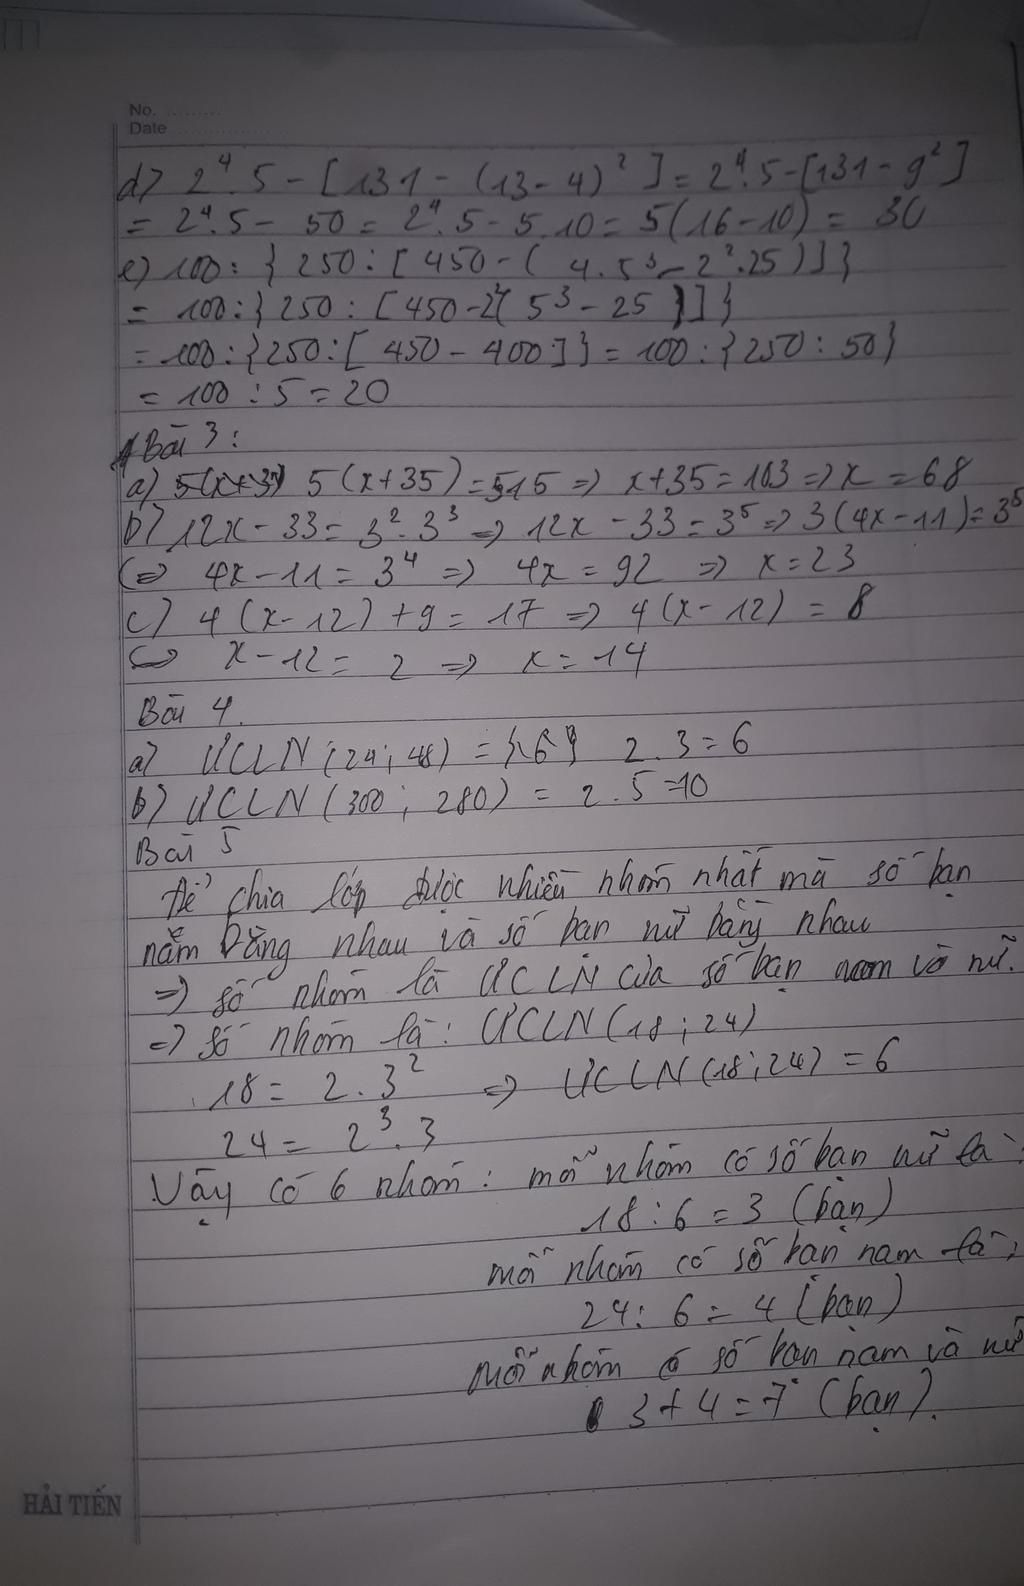 No. ..........
Date ..................
d) 2⁴.5 - [131 - (13 - 4)²] = 2⁴.5 - [131 - 9²]
= 2⁴.5 - 50 = 2⁴.5 - 5.10 = 5(16 - 10) = 30
e) 100 : { 250 : [ 450 - ( 4.5³ - 2².25 ) ] }
= 100 : { 250 : [ 450 - 2²( 5³ - 25 ) ] }
= 100 : { 250 : [ 450 - 400 ] } = 100 : { 250 : 50 }
= 100 : 5 = 20
Bài 3 :
a) 5(x+35) = 515 => x + 35 = 103 => x = 68
b) 12x - 33 = 3².3³ => 12x - 33 = 3⁵ => 3(4x - 11) = 3⁵
(=> 4x - 11 = 3⁴ => 4x = 92 => x = 23
c) 4(x - 12) + 9 = 17 => 4(x - 12) = 8
<=> x - 12 = 2 => x = 14
Bài 4.
a) ƯCLN (24 ; 48) = 2.3 = 6
b) ƯCLN (300 ; 280) = 2.5 = 10
Bài 5
Để chia lớp được nhiều nhóm nhất mà số bạn
nằm bằng nhau và số bạn nữ bằng nhau
=> số nhóm là ƯCLN của số bạn nam và nữ.
=> số nhóm là : ƯCLN (18 ; 24)
18 = 2.3² => ƯCLN (18 ; 24) = 6
24 = 2³.3
Vậy có 6 nhóm : mỗi nhóm có số bạn nữ là :
18 : 6 = 3 (bạn)
mỗi nhóm có số bạn nam là :
24 : 6 = 4 (bạn)
mỗi nhóm có số bạn nam và nữ
3 + 4 = 7 (bạn).
HẢI TIẾN